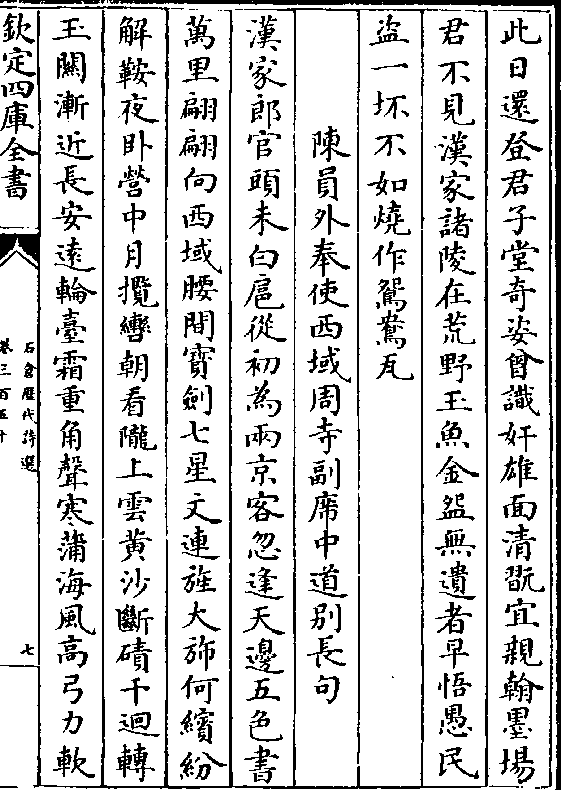 此日還登君子堂奇姿曾識奸雄面清翫宜親翰墨場
君不見漢家諸陵在荒野玉魚金盌無遺者早悟愚民
盜一坏不如燒作鴛鴦瓦
陳員外奉使西域周寺副席中道別長句
漢家郎官頭未白扈從初為兩京客忽逢天邊五色書
萬里翩翩向西域腰間寶劍七星文連旌大斾何繽紛
解鞍夜卧營中月攬轡朝看隴上雲黄沙斷磧千迴轉
玉關漸近長安遠輪臺霜重角聲寒蒲海風高弓力軟
欽定四庫全書
石倉歷代詩選
卷三百五十
七